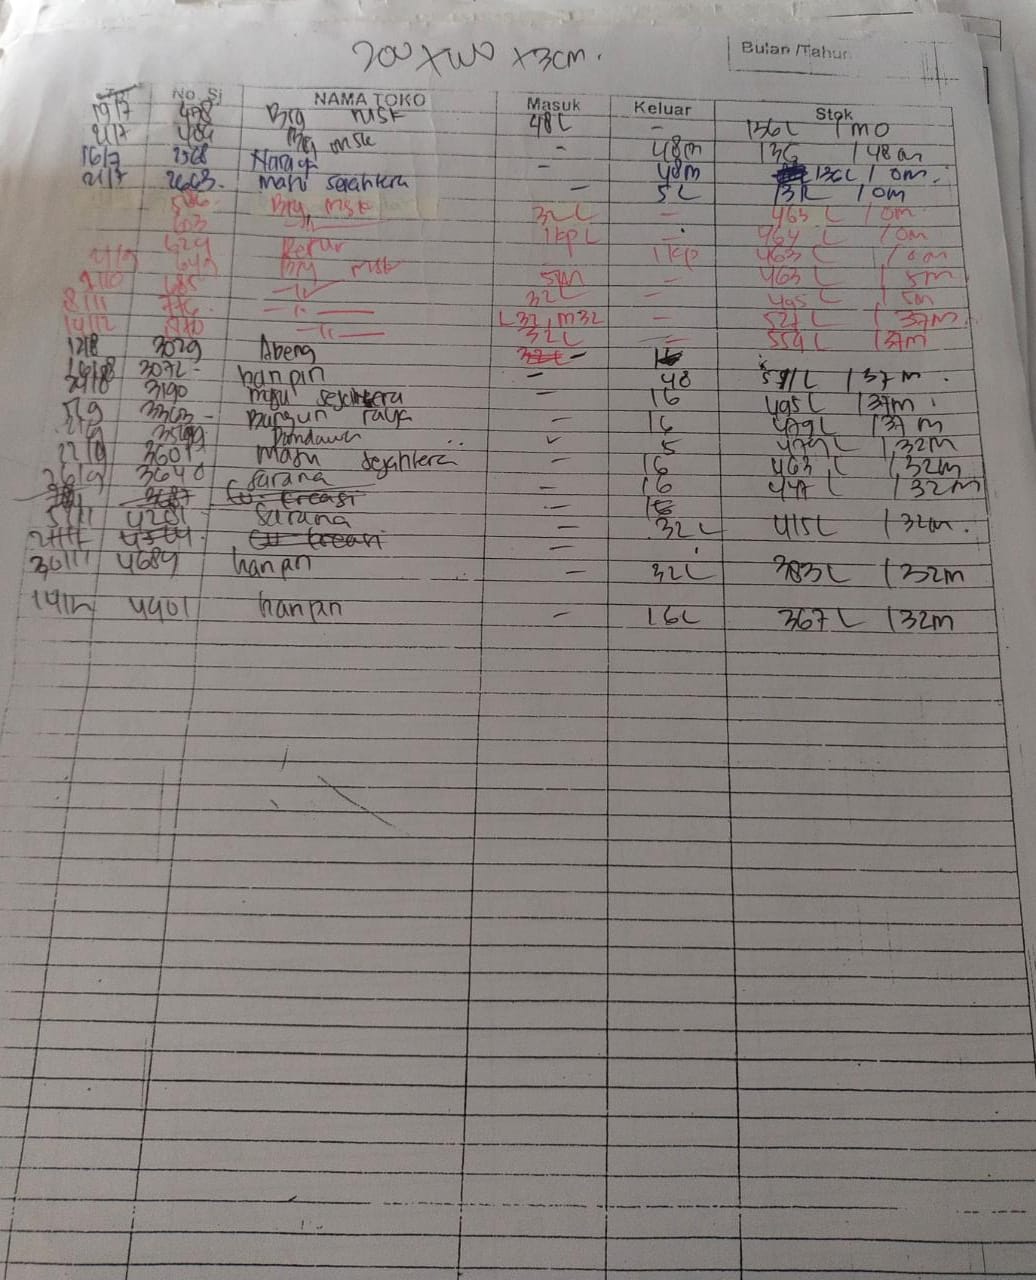 200 x 100 x 3cm.
Bulan /Tahun
No. SJ NAMA TOKO Masuk Keluar Stok
19/7 478 Brg msk 48L - 136L / m0
484 Brg msk - 48m 136 / 48m
16/7 2568 - 48m 136L / 0m.
21/7 2663. maju sejahtera - 5L 131L / 0m
586 Brg msk 32L - 463 L / 0m
603 1kp L - 464 L / 0m
629 Retur 1kp 463 L / 0m
649 Brg msk 5m - 463 L / 5m
685 32L - 495 L / 5m
L32, m32 - 527L / 37m.
14/12 32L - 559L / 37m
12/8 3029 Abeng - 16
3072 - hanpin - 48 / 37m.
3190 maju sejahtera - 16 495L / 37m
5/9 Bangun raya - 16 479L / 37m
Pandawa 5 479L / 32m
22/9 3601 maju sejahtera - 16 463 L / 32m
26/9 3640 sarana - 16 447 L / 32m
3687 cv. creasi - 16
5/11 4201 sarana - 32L 415L / 32m.
cv creasi -
30/11 4689 hanpin - 32L 383L / 32m
14/12 4901 hanpin - 16L 367L / 32m